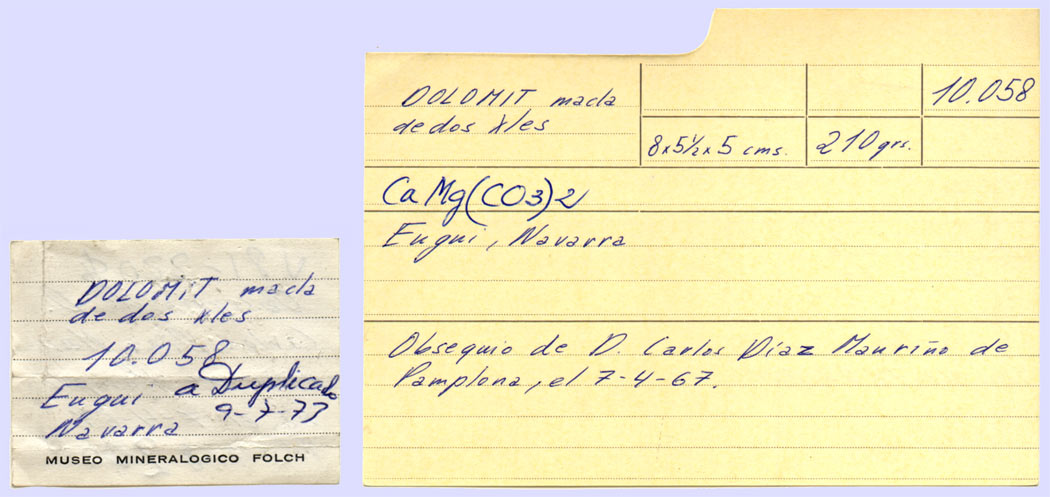 DOLOMIT macla
de dos xles
10.058
Eugui a Duplicado
9-7-73
Navarra
MUSEO MINERALOGICO FOLCH
DOLOMIT macla
de dos xles
10.058
8x5½x5 cms. 210 grs.
CaMg(CO3)2
Eugui, Navarra
Obsequio de D. Carlos Díaz Mauriño de
Pamplona, el 7-4-67.